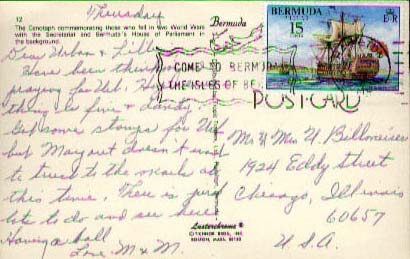 Thursday
12
The Cenotaph commemorating those who fell in two World Wars
with the Secretariat and Bermuda's House of Parliament in
the background.
Bermuda
BERMUDA
15
E R
COME TO BERMUDA
THE ISLES OF
POSTCARD
Dear Urban &
Have been
praying for
thing is fine &
Got some stamps for
but Margaret doesn't want
to trust to the mails at
this time. There is just
lots to do and see here
Having a ball
Love, M & M.
Mr & Mrs U.
1924 Eddy Street
Chicago, Illinois
60657
U.S.A.
Lusterchrome®
TICHNOR BROS., INC.
BOSTON, MASS. 02135